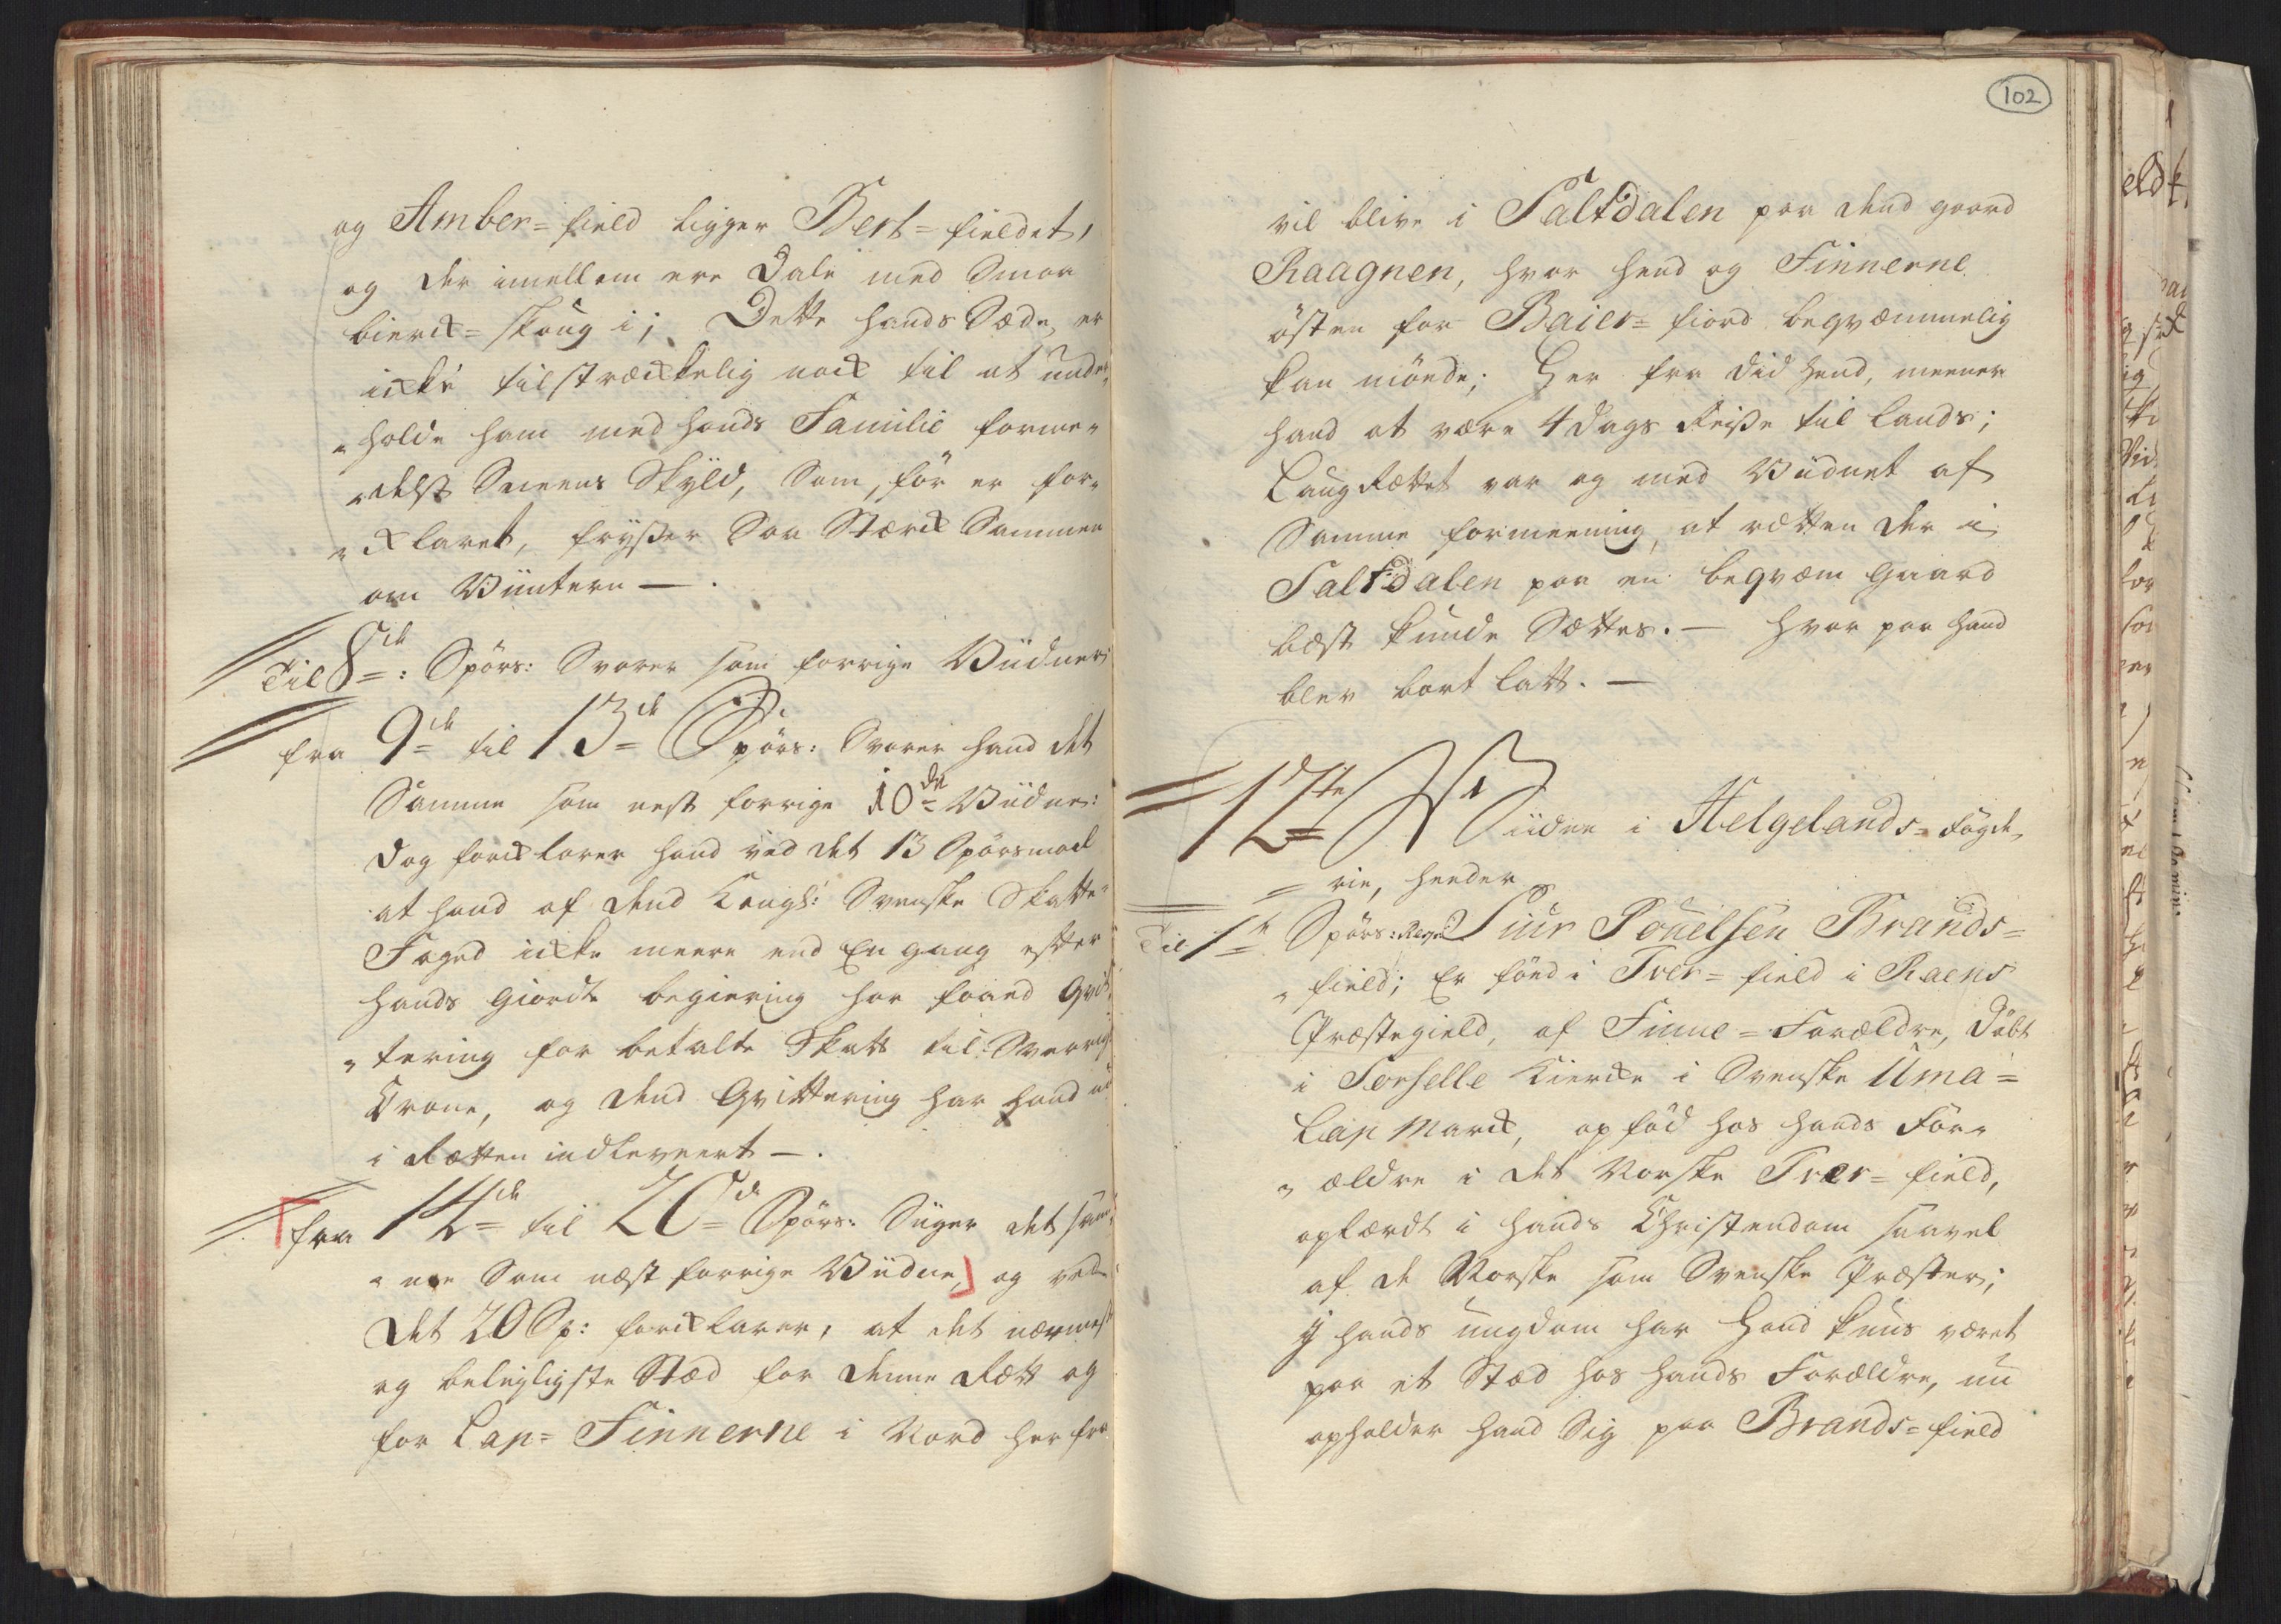 og Amber= field ligger Bert= fieldet,
og der imellem ere Dale med Smaa
bierck= skoug i; Dette hands Sæde er
icke tilstræckkelig nock til at under„
„holde ham med hands Familie forme„
„delst Sneens Skyld, Som, før er for„
„cklaret, frysser Saa Stærck Sammen
om Vinteren — .
Til 8de: Spörs: Svarer som forrige Viidner;
fra 9de til 13de Spörs: Svarer hand det
Samme som nest forrige 10de Viidne:
Dog forcklarer hand ved det 13 Spörsmaal
at hand af dend Kongl: Svenske Skatte„
Foged icke meere end En gang efter
hands giordte begiering har faaed Qvit„
„tering for betalte Skatt til Sverrigs
Krone, og dend Qvittering har hand nu
i Rætten indleveert — .
fra 14de til 20de Spörs: Siiger det sam„
„me Som næst forrige Viidne, og ved
Det 20 Sp: forcklarer, at det nærmest
og beleyligste Stæd for denne Rætt og
for Lap= Finnerne i Nord her fra
102
vil blive i Saltdalen paa dend gaard
Raagnen, hvor hand og Finnerne
östen for Baier= fiord beqvæmmelig
kan möede; Her fra did hend, meener
hand at være 4 Dags Reise til Lands;
Laug Rættet var og med Viidnet af
Samme formeening, at rætten der i
Saltdalen paa en beqvem Gaard
best kunde Sættes. — hvor paa hand
blev bort latt. —
12te Viidne i Helgelands= Fögde„
= rie, heeder
Til 1te Spörs: Siur Pouelsen Brands=
„field; Er föed i Tver= field i Raens
Præstegield, af Finne= Forældre, Döbt
i Sorselle Kiercke i Svenske Uma=
Lap Marck, opföd hos hands For„
„ældre i det Norske Tvær= field,
oplærdt i hands Christendom saavel
af de Norske som Svenske Præster;
Y hands ungdom har Hand kuns været
paa et Stæd hos hands Forældre, nu
opholder hand Sig paa Brands= field